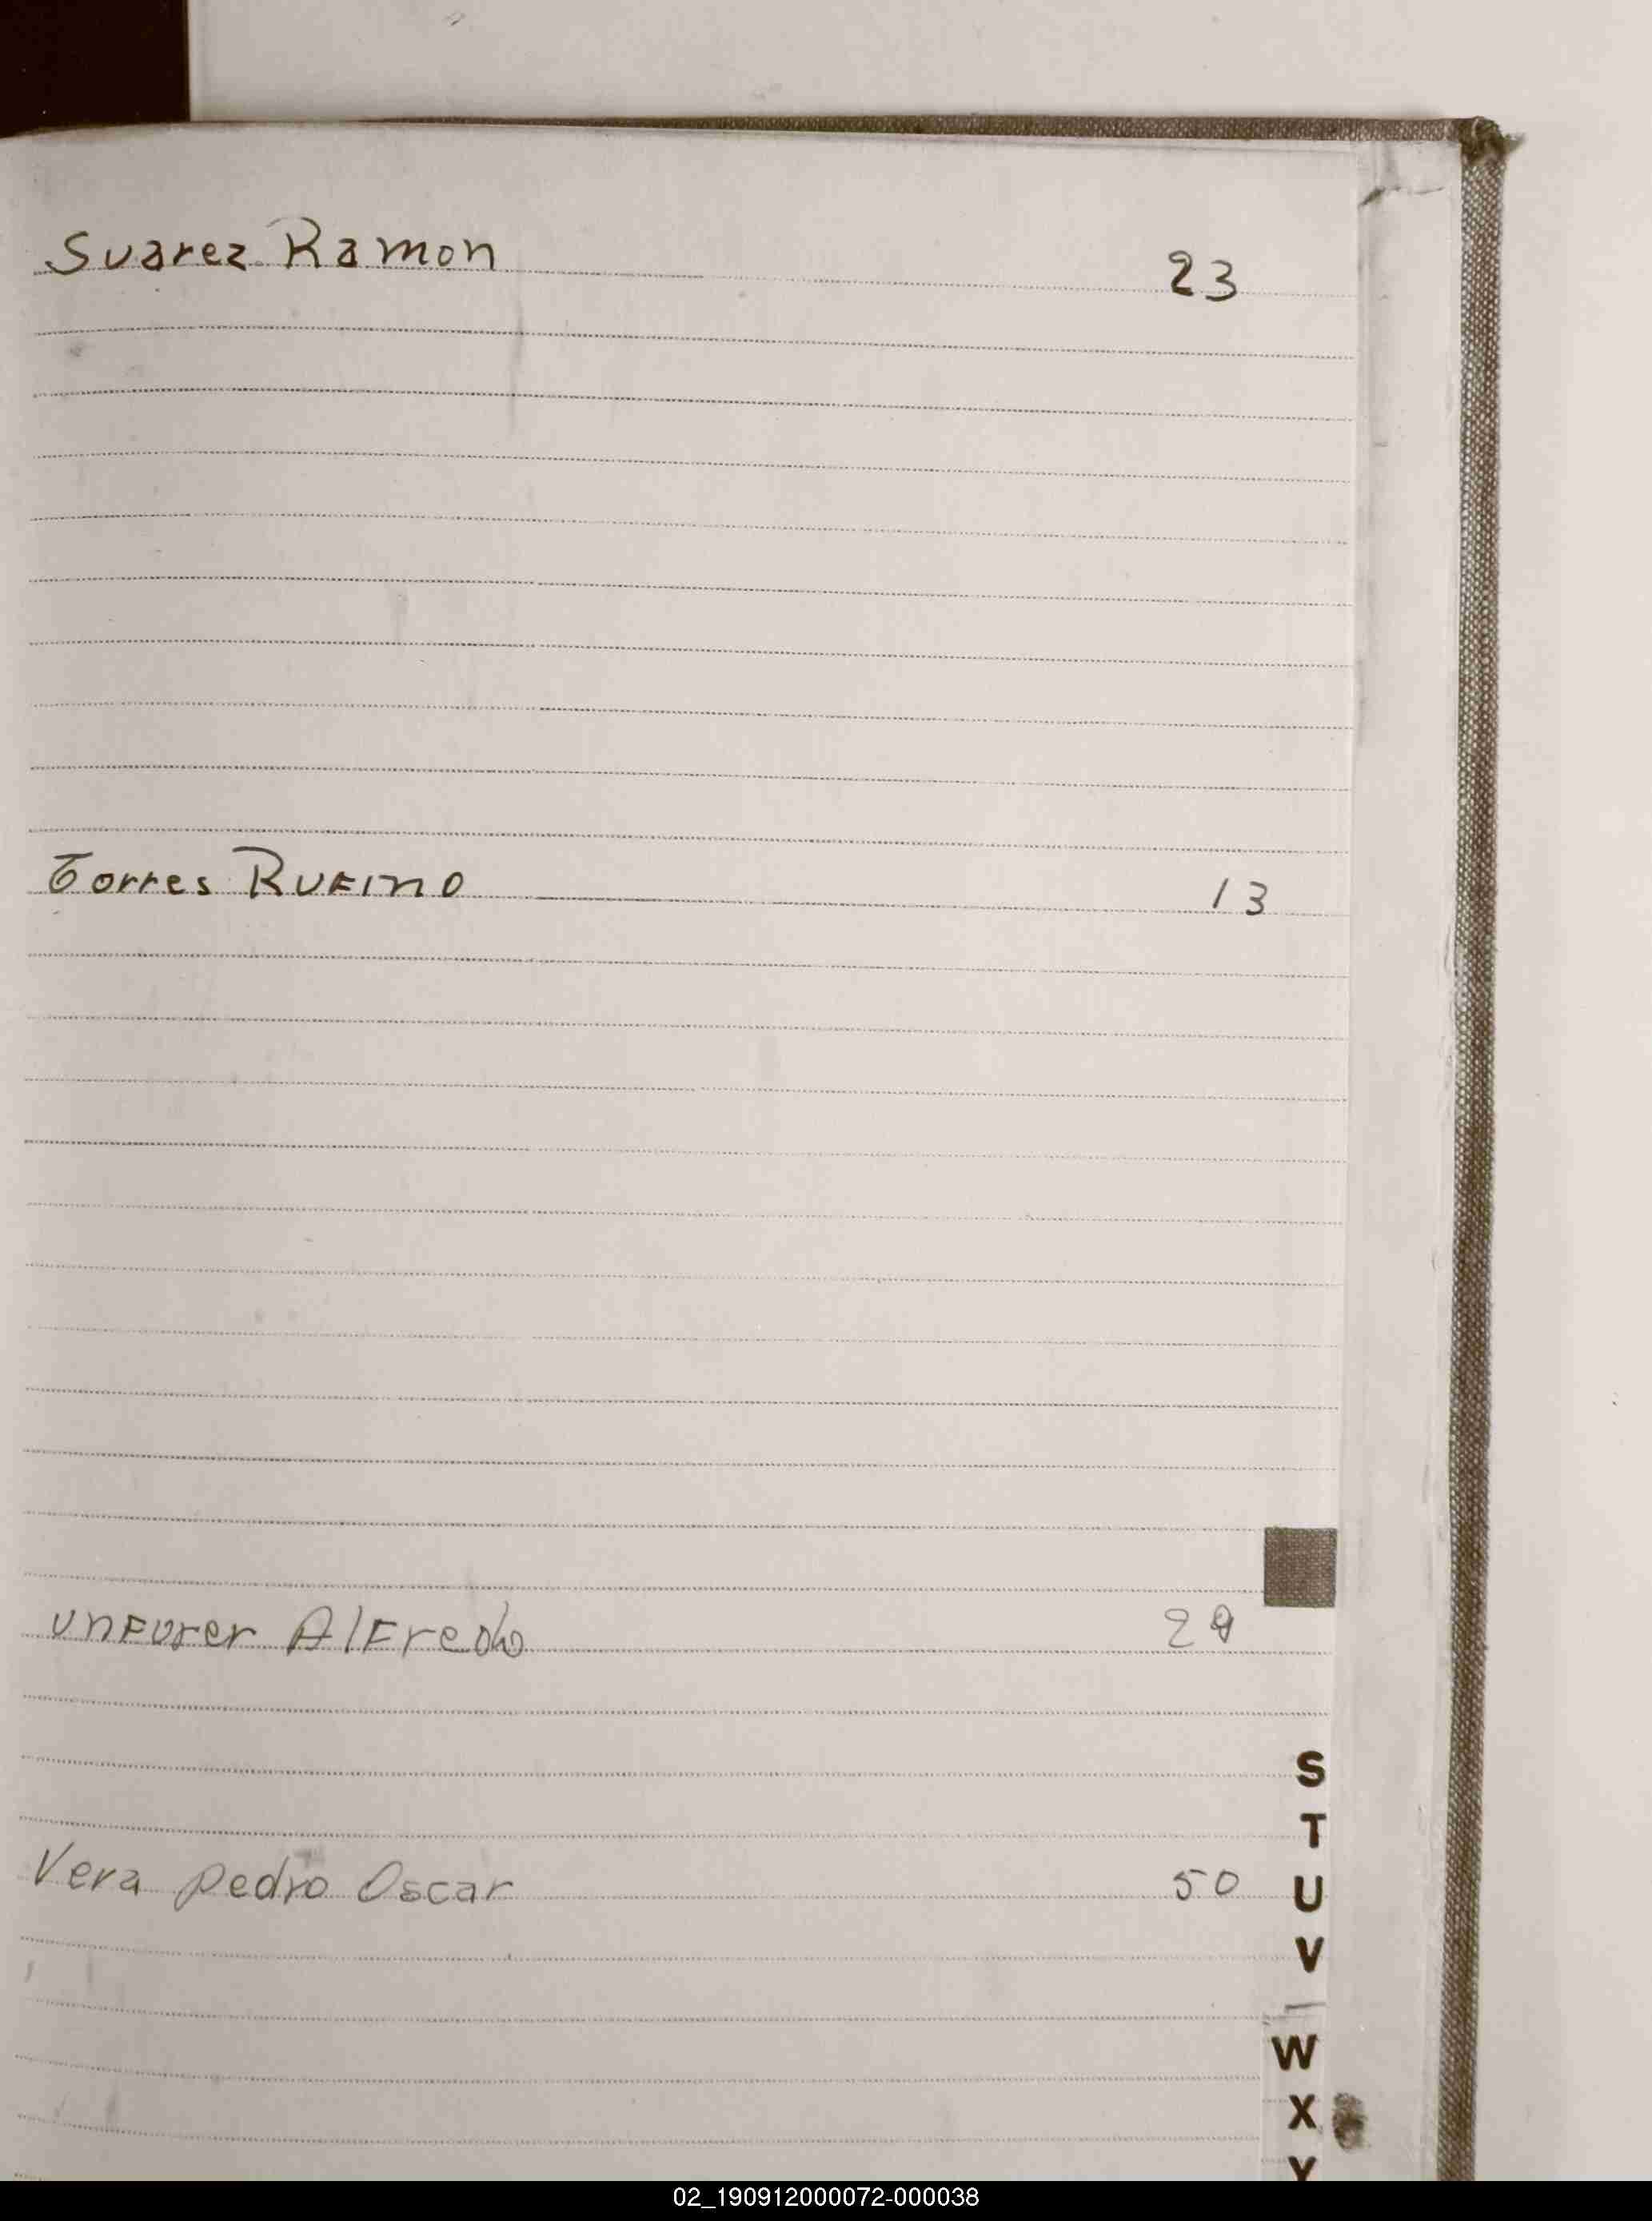 Suarez Ramon 23
Torres Rufino 13
Alfredo
Vera pedro Oscar 50
S
T
U
V
W
X
Y
02_190912000072-000038